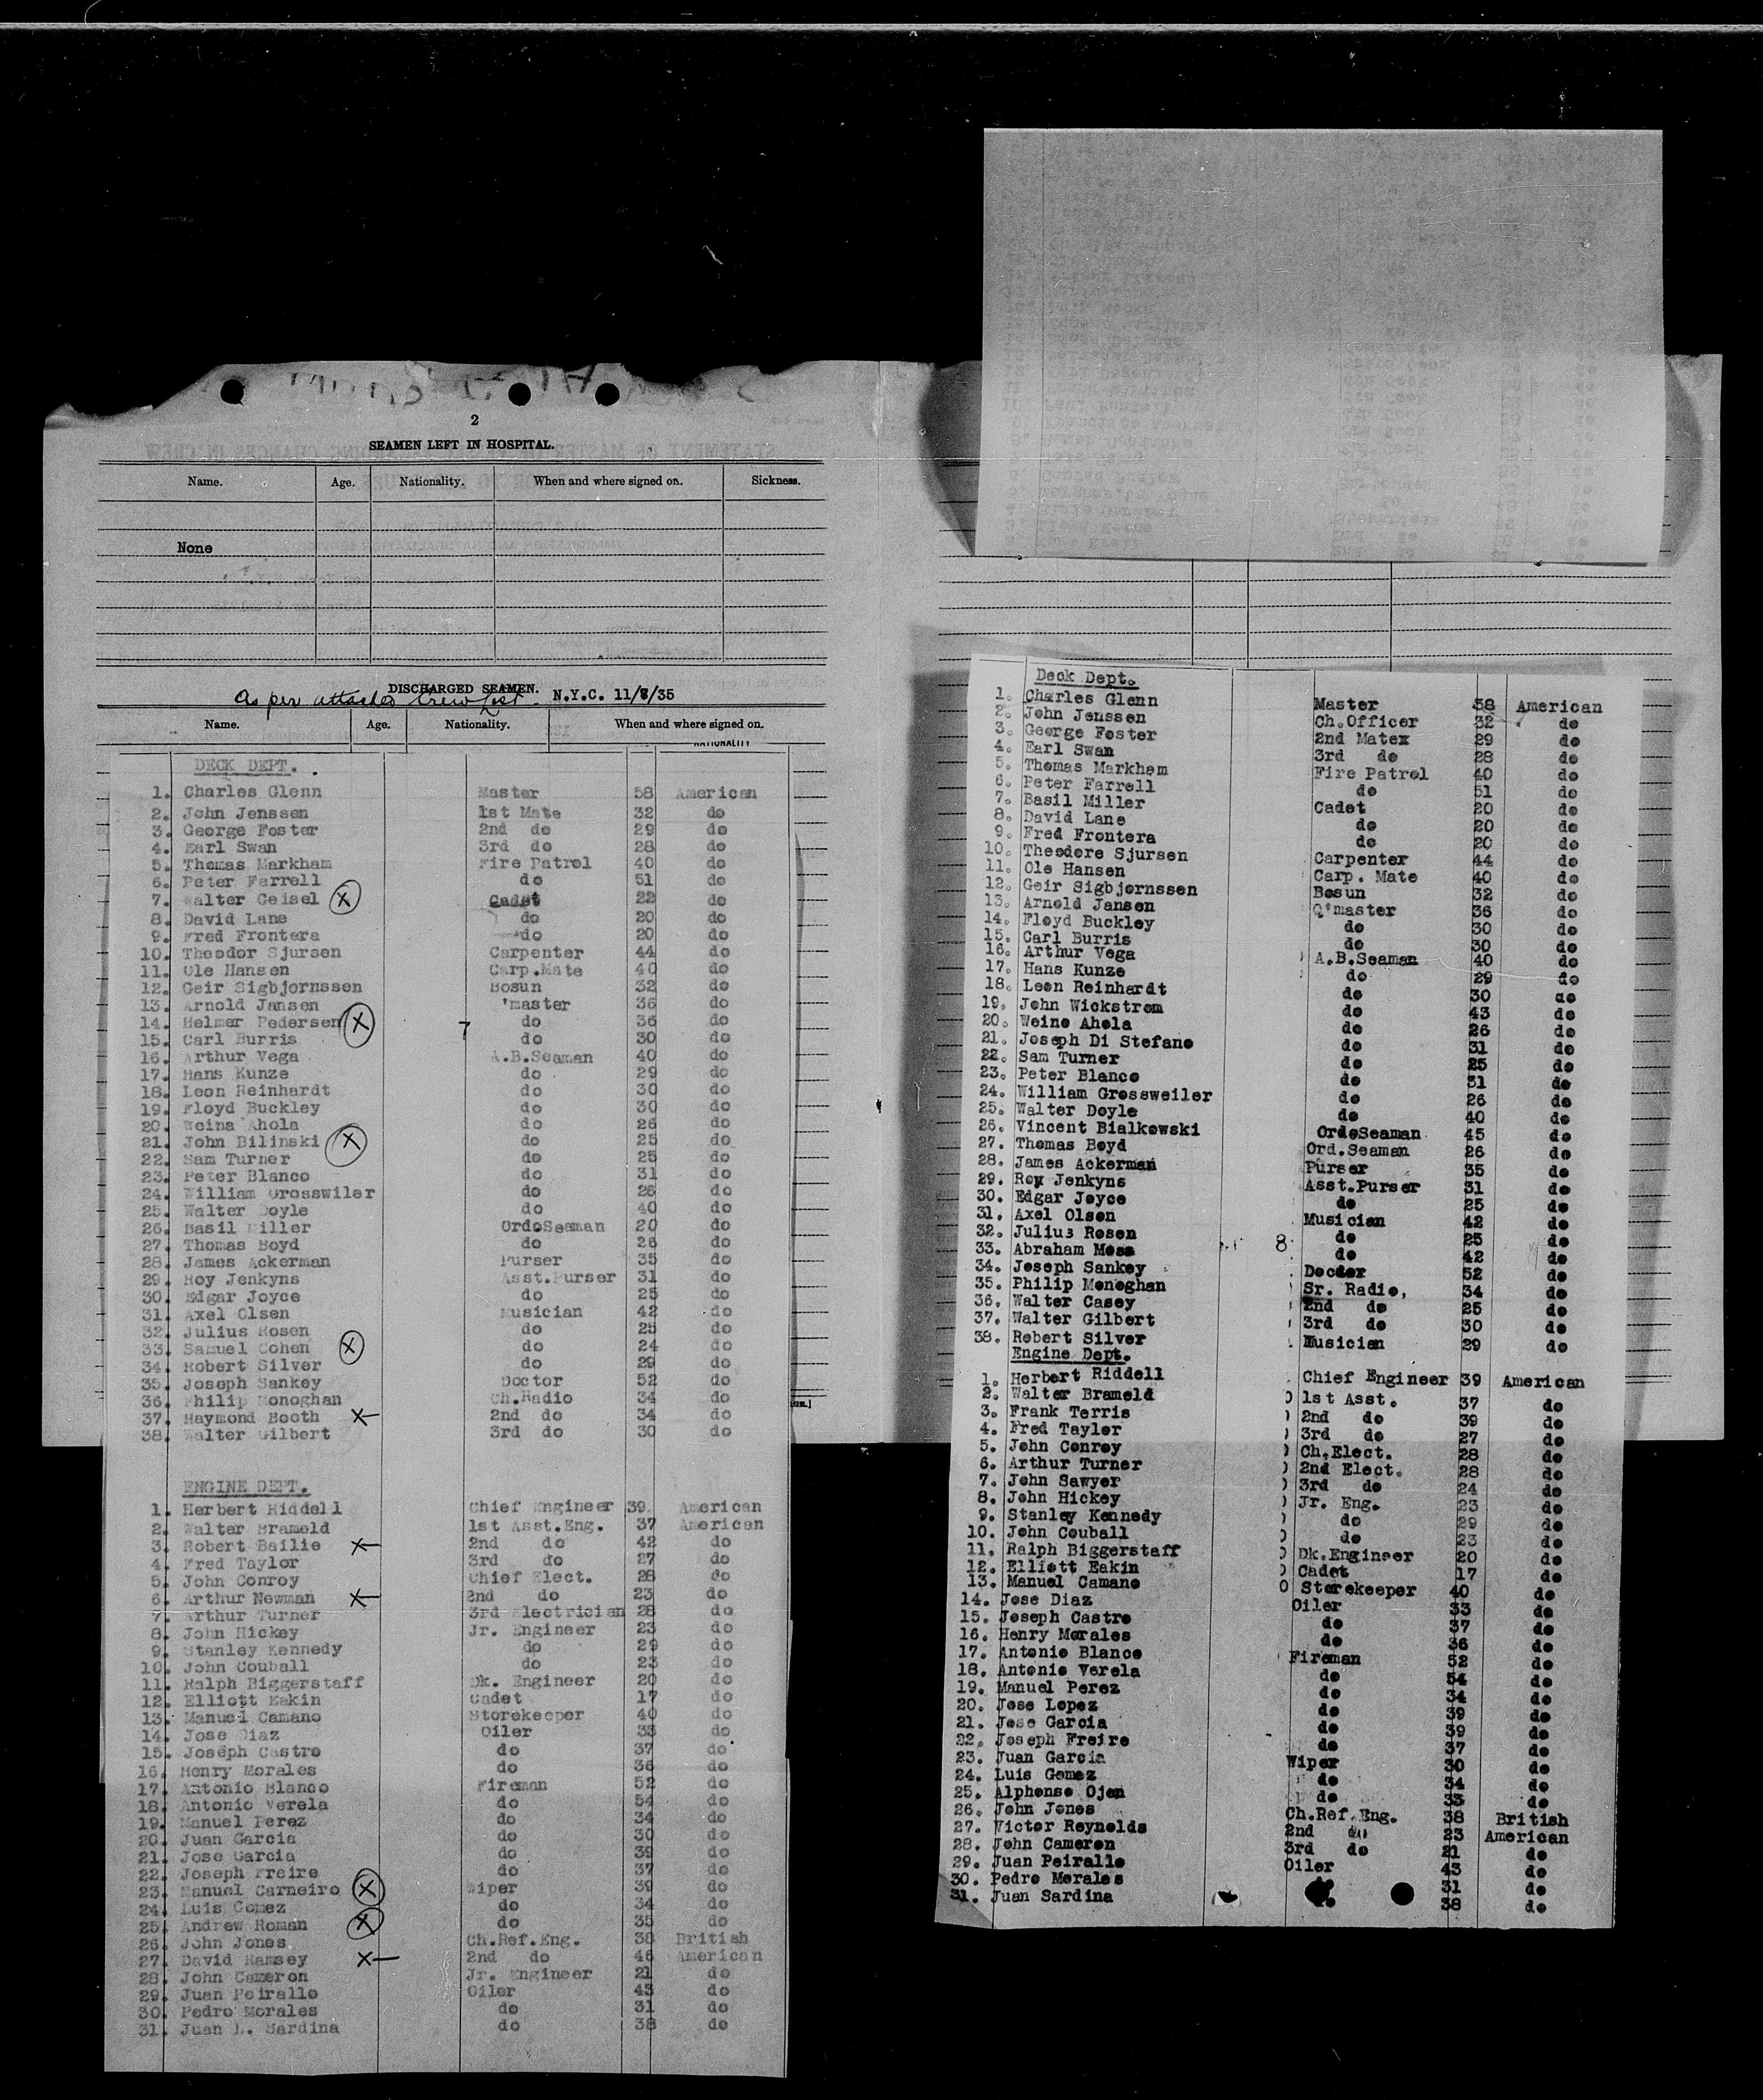 2
SEAMEN LEFT IN HOSPITAL.
Name. Age. Nationality. When and where signed on. Sickness.
None
DISCHARGED SEAMEN. N.Y.C. 11/8/35
As per attached Crew List.
Name. Age. Nationality. When and where signed on.
NATIONALITY
DECK DEPT.
1. Charles Glenn Master 58 American
2. John Jenssen 1st Mate 32 do
3. George Foster 2nd do 29 do
4. Earl Swan 3rd do 28 do
5. Thomas Markham Fire Patrol 40 do
6. Peter Farrell do 51 do
7. Walter Geisel X Cadet 22 do
8. David Lane do 20 do
9. Fred Frontera do 20 do
10. Theodor Sjursen Carpenter 44 do
11. Ole Hansen Carp.Mate 40 do
12. Geir Sigbjornssen Bosun 32 do
13. Arnold Jansen 'master 36 do
14. Helmer Pedersen X do 36 do
15. Carl Burris do 30 do
16. Arthur Vega A.B.Seaman 40 do
17. Hans Kunze do 29 do
18. Leon Reinhardt do 30 do
19. Floyd Buckley do 30 do
20. Weina Ahola do 26 do
21. John Bilinski X do 25 do
22. Sam Turner do 25 do
23. Peter Blanco do 31 do
24. William Grosswiler do 26 do
25. Walter Doyle do 40 do
26. Basil Miller OrdoSeaman 20 do
27. Thomas Boyd do 26 do
28. James Ackerman Purser 35 do
29. Roy Jenkyns Asst.Purser 31 do
30. Edgar Joyce do 25 do
31. Axel Olsen Musician 42 do
32. Julius Rosen do 25 do
33. Samuel Cohen X do 24 do
34. Robert Silver do 29 do
35. Joseph Sankey Doctor 52 do
36. Philip Monoghan Ch.Radio 34 do
37. Raymond Booth X 2nd do 34 do
38. Walter Gilbert 3rd do 30 do
ENGINE DEPT.
1. Herbert Riddell Chief Engineer 39 American
2. Walter Brameld 1st Asst.Eng. 37 American
3. Robert Bailie X 2nd do 42 do
4. Fred Taylor 3rd do 27 do
5. John Conroy Chief Elect. 28 do
6. Arthur Newman X 2nd do 23 do
7. Arthur Turner 3rd Electrician 28 do
8. John Hickey Jr. Engineer 23 do
9. Stanley Kennedy do 29 do
10. John Couball do 23 do
11. Ralph Biggerstaff Dk. Engineer 20 do
12. Elliott Eakin Cadet 17 do
13. Manuel Camano Storekeeper 40 do
14. Jose Diaz Oiler 33 do
15. Joseph Castro do 37 do
16. Henry Morales do 36 do
17. Antonio Blanco Fireman 52 do
18. Antonio Verela do 54 do
19. Manuel Perez do 34 do
20. Juan Garcia do 30 do
21. Jose Garcia do 39 do
22. Joseph Freire do 37 do
23. Manuel Carneiro X Wiper 39 do
24. Luis Gomez do 34 do
25. Andrew Roman X do 35 do
26. John Jones Ch.Ref.Eng. 38 British
27. David Ramsey X 2nd do 46 American
28. John Cameron Jr. Engineer 21 do
29. Juan Peirallo Oiler 43 do
30. Pedro Morales do 31 do
31. Juan L. Sardina do 38 do
Deck Dept.
1. Charles Glenn Master 58 American
2. John Jenssen Ch.Officer 32 do
3. George Foster 2nd Matex 29 do
4. Earl Swan 3rd do 28 do
5. Thomas Markham Fire Patrol 40 do
6. Peter Farrell do 51 do
7. Basil Miller Cadet 20 do
8. David Lane do 20 do
9. Fred Frontera do 20 do
10. Theodore Sjursen Carpenter 44 do
11. Ole Hansen Carp. Mate 40 do
12. Geir Sigbjornssen Bosun 32 do
13. Arnold Jansen Q'master 36 do
14. Floyd Buckley do 30 do
15. Carl Burris do 30 do
16. Arthur Vega A.B.Seaman 40 do
17. Hans Kunze do 29 do
18. Leon Reinhardt do 30 do
19. John Wickstrom do 43 do
20. Weino Ahola do 26 do
21. Joseph Di Stefano do 31 do
22. Sam Turner do 25 do
23. Peter Blanco do 31 do
24. William Grossweiler do 26 do
25. Walter Doyle do 40 do
26. Vincent Bialkowski OrdoSeaman 45 do
27. Thomas Boyd Ord.Seaman 26 do
28. James Ackerman Purser 35 do
29. Roy Jenkyns Asst.Purser 31 do
30. Edgar Joyce do 25 do
31. Axel Olson Musician 42 do
32. Julius Rosen do 25 do
33. Abraham Moss do 42 do
34. Joseph Sankey Doctor 52 do
35. Philip Monoghan Sr. Radio, 34 do
36. Walter Casey 2nd do 25 do
37. Walter Gilbert 3rd do 30 do
38. Robert Silver Musician 29 do
Engine Dept.
1. Herbert Riddell Chief Engineer 39 American
2. Walter Brameld 1st Asst. 37 do
3. Frank Terris 2nd do 39 do
4. Fred Taylor 3rd do 27 do
5. John Conroy Ch.Elect. 28 do
6. Arthur Turner 2nd Elect. 28 do
7. John Sawyer 3rd do 24 do
8. John Hickey Jr. Eng. 23 do
9. Stanley Kennedy do 29 do
10. John Couball do 23 do
11. Ralph Biggerstaff Dk.Engineer 20 do
12. Elliott Eakin Cadet 17 do
13. Manuel Camano Storekeeper 40 do
14. Jose Diaz Oiler 33 do
15. Joseph Castro do 37 do
16. Henry Morales do 36 do
17. Antonio Blanco Fireman 52 do
18. Antonio Verela do 54 do
19. Manuel Perez do 34 do
20. Jose Lopez do 39 do
21. Jose Garcia do 39 do
22. Joseph Freire do 37 do
23. Juan Garcia Wiper 30 do
24. Luis Gomez do 34 do
25. Alphonse Ojen do 33 do
26. John Jones Ch.Ref.Eng. 38 British
27. Victor Reynolds 2nd do 23 American
28. John Cameron 3rd do 21 do
29. Juan Peirallo Oiler 43 do
30. Pedro Morales 31 do
31. Juan Sardina 38 do